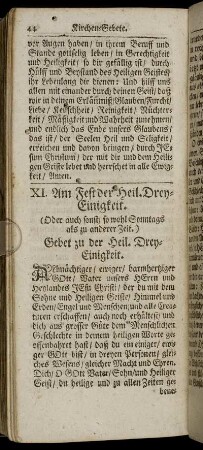 44 Kirchen-Gebete.
vor Augen haben / in ihrem Beruff und
Stande gottselig leben / in Gerechtigkeit
und Heiligkeit / so dir gefällig ist / durch
Hülff und Beystand des Heiligen Geistes /
ihr Lebenlang dir dienen! Und hilff uns allen
allen mit einander durch deinen Geist / daß
wir in deiner Erkäntniß / Glauben / Furcht /
Liebe / Keuschheit / Reinigkeit / Nüchter-
keit / Mäßigkeit und Wahrheit zunehmen /
und endlich das Ende unsers Glaubens /
das ist / der Seelen Heil und Seligkeit /
erreichen und davon bringen / durch JE-
sum Christum / der mit dir und dem Heili-
gen Geiste lebet und herrschet in alle Ewig-
keit / Amen.
XI. Am Fest der Heil. Drey-
Einigkeit.
(Oder auch sonst so wohl Sonntags
als zu anderer Zeit.)
Gebet zu der Heil. Drey-
Einigkeit.
Allmächtiger / ewiger / barmhertziger
GOtt / Vater unsers HErrn und
Heylandes JEsu Christi / der du mit dem
Sohne und Heiligen Geiste / Himmel und
Erden / Engel und Menschen / und alle Crea-
turen erschaffen / auch noch erhältest / und
dich aus grosser Güte dem Menschlichen
Geschlechte in deinem heiligen Worte ge-
offenbahret hast / daß du ein einiger / ewi-
ger GOtt bist / in dreyen Personen / glei-
ches Wesens / gleicher Macht und Ehren.
Dich / O GOtt Vater / Sohn / und Heiliger
Geist / du heilige und zu allen Zeiten ge-